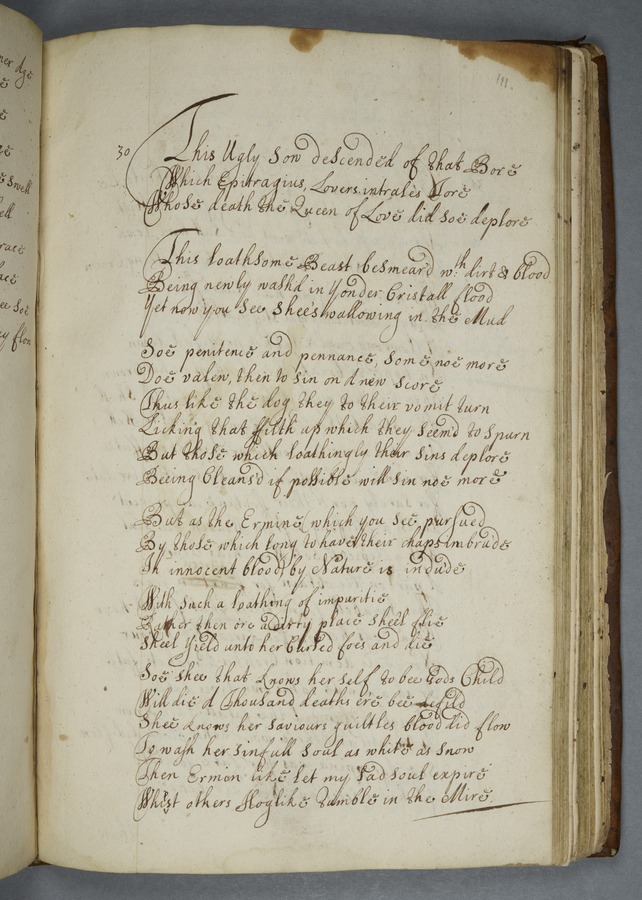 111.
30 This Ugly Sow descended of that Bore
Which Epitragius, Lovers intrales Tore
Whose death the Queen of Love did soe deplore
This loathsome Beast besmeard wth dirt & blood
Being newly washd in yonder Cristall flood
Yet now you see shee's wallowing in the Mud
Soe penitence and pennance, some noe more
Doe valew, then to sin on a new score
Thus like the dog they to their vomit turn
Licking that filth up which they seem'd to spurn
But those which loathingly their sins deplore
Beeing Cleansd if possible will sin noe more
But as the Ermine (which you see pursued
By those which long to have their chaps imbrude
In innocent blood) by Nature is indude
With such a loathing of impuritie
Rather then ore a dirty place sheel flie
Sheel yield unto her Cursed foes and die
Soe shee that knows her self to bee Gods Child
Will die a Thousand deaths ere bee defild
Shee knows her saviours guiltles blood did flow
To wash her sinfull soul as white as snow
Then Ermin like let my sad soul expire
Whilst others Hoglike tumble in the Mire.